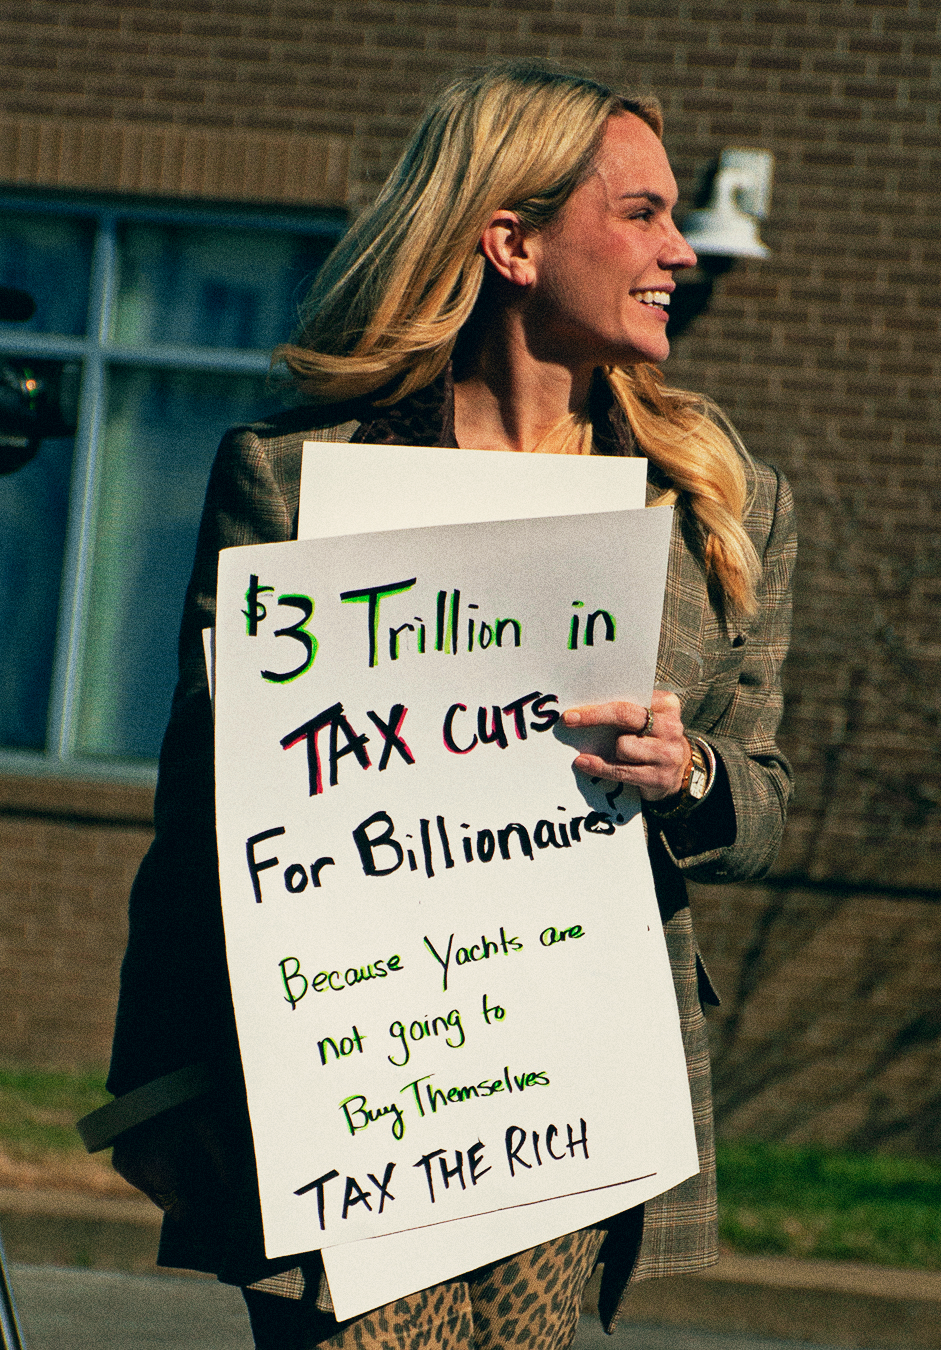 $3 Trillion in
TAX CUTS
For Billionaires?
Because Yachts are
not going to
Buy Themselves
TAX THE RICH